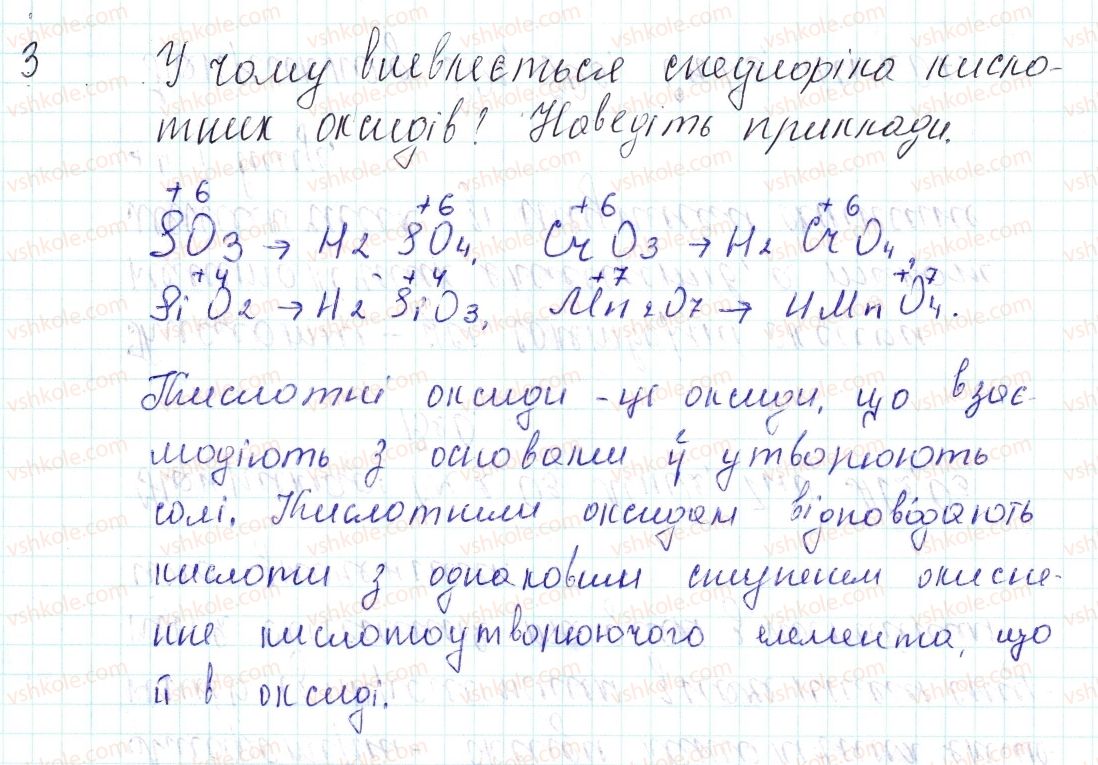 3 У чому виявляється спедиоріка кисло-
тних оксидів? Наведіть приклади.
+6 +6 +6 +6
SO3 → H2SO4, CrO3 → H2CrO4,
+4 +4 +7 +7
SiO2 → H2SiO3, Mn2O7 → HMnO4.
Кислотні оксиди - це оксиди, що взає-
модіють з основами й утворюють
солі. Кислотним оксидам відповідають
кислоти з однаковим ступенем окисне-
ння кислотоутворюючого елемента, що
й в оксиді.